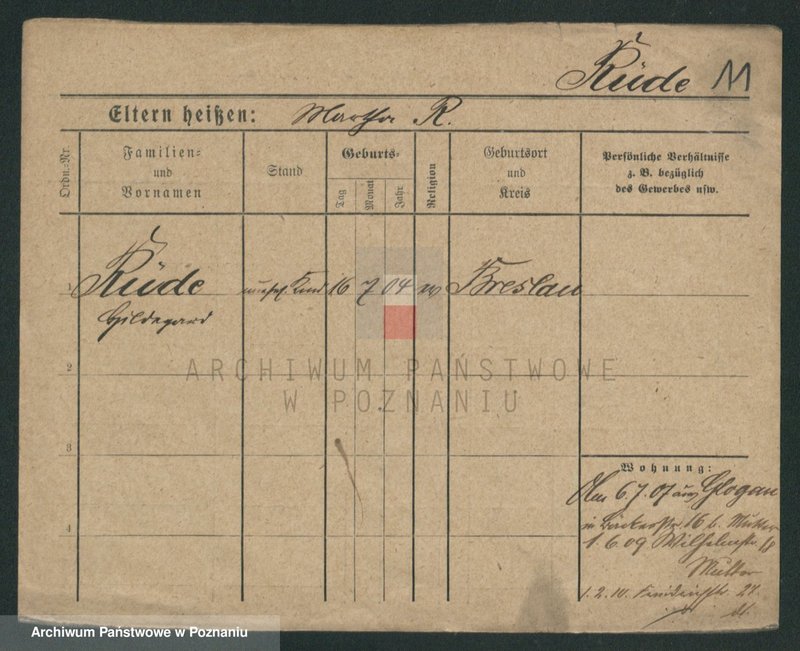 Rüde M
Eltern heißen: Martha R.
Ordn.-Nr.
Familien- und Vornamen
Stand
Geburts-
Tag
Monat
Jahr
Religion
Geburtsort und Kreis
Persönliche Verhältnisse
z. B. bezüglich
des Gewerbes usw.
1 Rüde Kind 16 7 04 Breslau
Hildegard
2
ARCHIWUM PAŃSTWOWE
W POZNANIU
3
Wohnung:
6.7.07 aus Glogau
in Bäckerstr. 16 b. Mutter
1.6.09 Wilhelmstr. 18
4
Mutter
1.2.10.
Archiwum Państwowe w Poznaniu